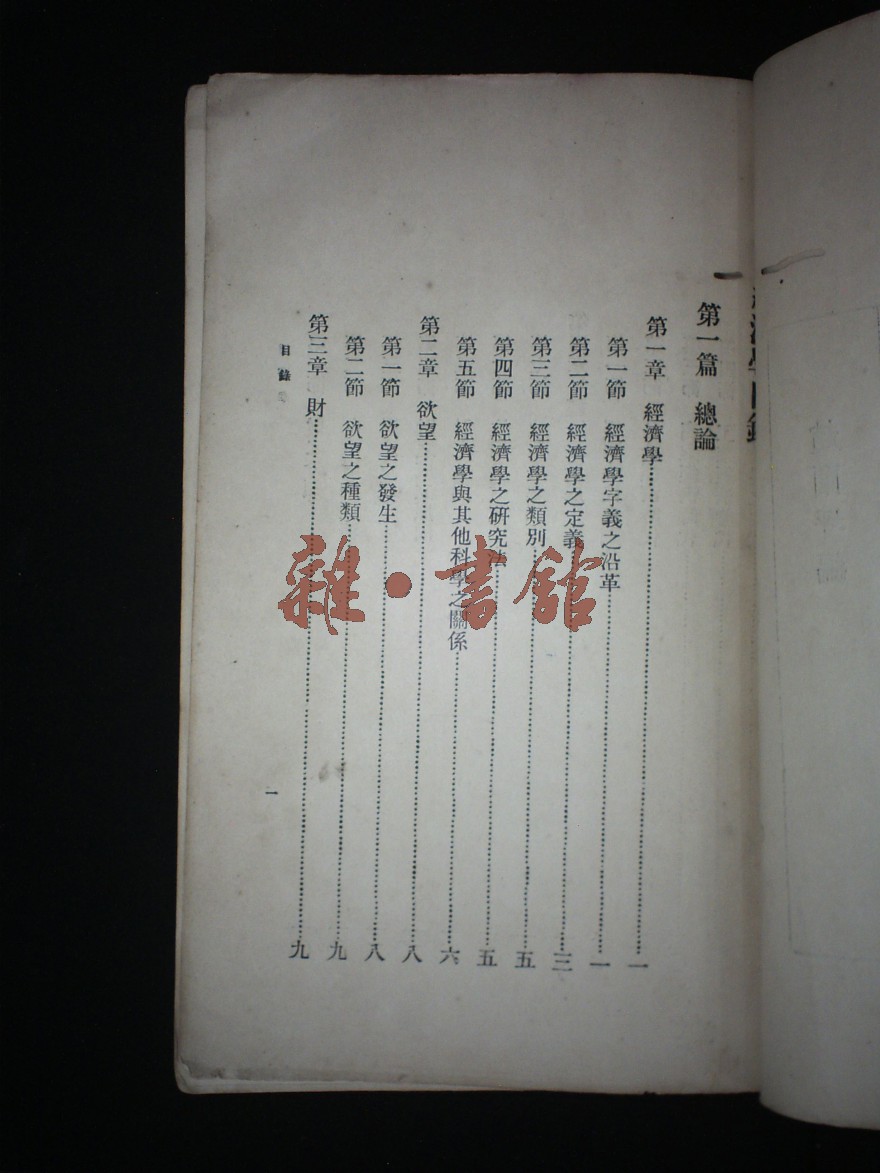 濟學目錄
第一篇 總論
第一章 經濟學……一
第一節 經濟學字義之沿革……一
第二節 經濟學之定義……三
第三節 經濟學之類別……五
第四節 經濟學之研究法……五
第五節 經濟學與其他科學之關係……六
第二章 欲望……八
第一節 欲望之發生……八
第二節 欲望之種類……九
第三章 財……九
目錄
一
雜·書館